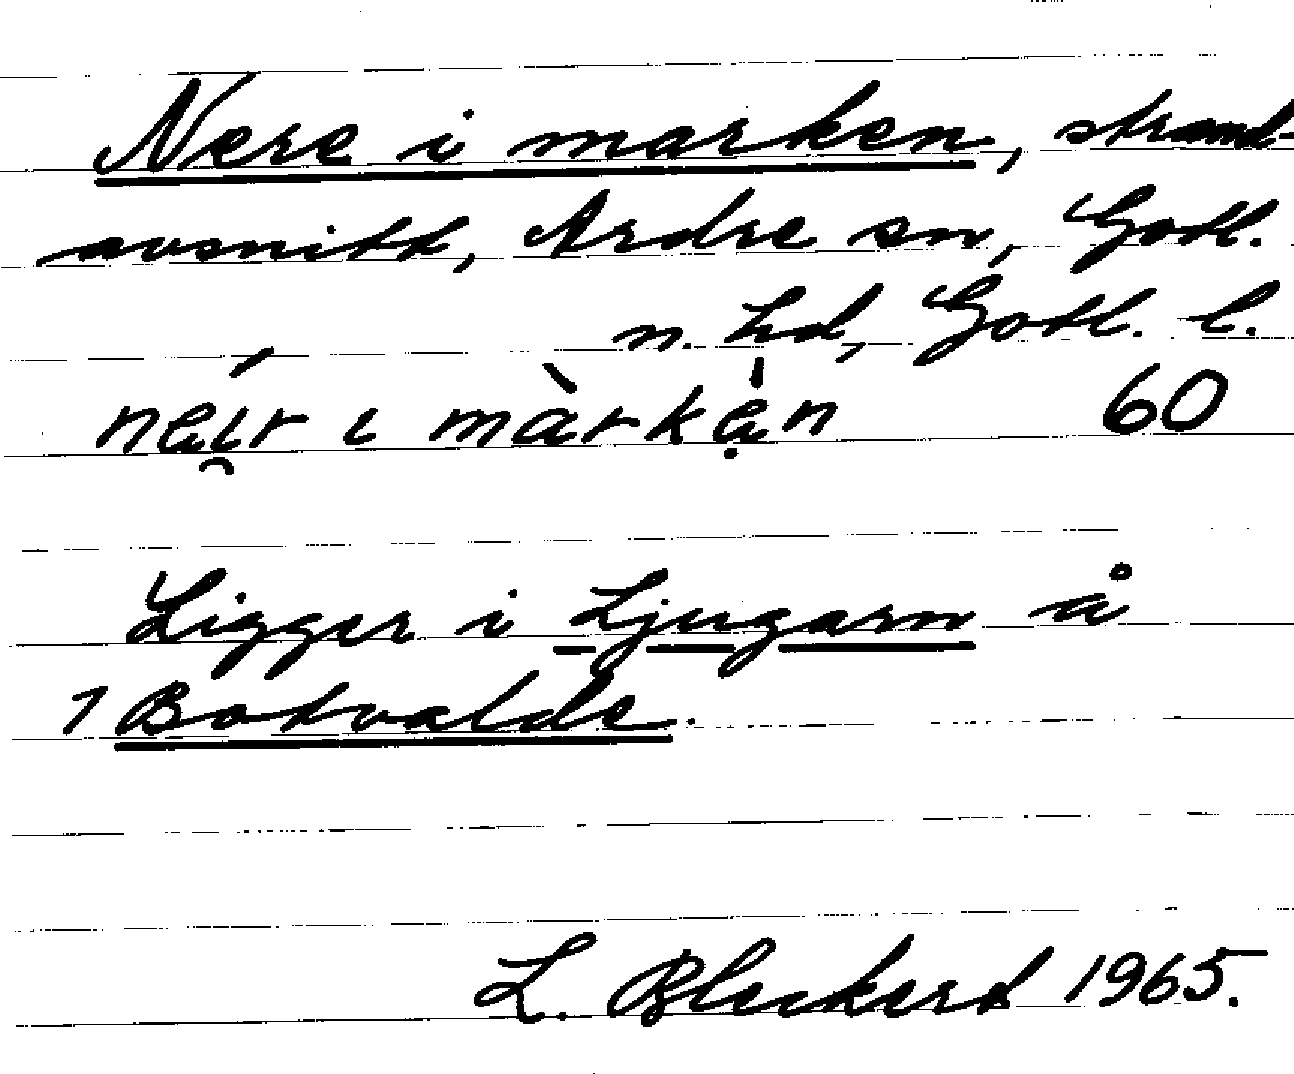 Nere i marken, strand-
avsnitt, Ardre sn, Gotl.
n. hd, Gotl. l.
nei̯ŕ ɩ màrkạ̍n 60
Ligger i Ljugarn å
1 Botvalde.
L. Bleckert 1965.